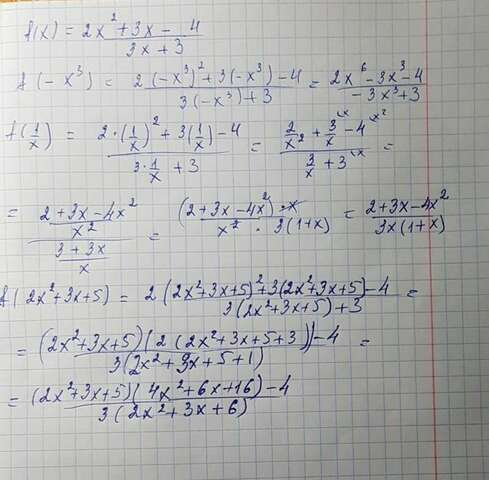 f(x) = (2x² + 3x - 4)/(3x + 3)
f(-x³) = (2(-x³)² + 3(-x³) - 4)/(3(-x³) + 3) = (2x⁶ - 3x³ - 4)/(-3x³ + 3)
f(1/x) = (2·(1/x)² + 3(1/x) - 4)/(3·1/x + 3) = (2/x² + 3/x^(\x) - 4^(\x²))/(3/x + 3^(\x)) =
= ((2 + 3x - 4x²)/x²)/((3 + 3x)/x) = ((2 + 3x - 4x²)·x)/(x² · 3(1+x)) = (2 + 3x - 4x²)/(3x(1+x))
f(2x² + 3x + 5) = (2(2x² + 3x + 5)² + 3(2x² + 3x + 5) - 4)/(3(2x² + 3x + 5) + 3) =
= ((2x² + 3x + 5)(2(2x² + 3x + 5 + 3)) - 4)/(3(2x² + 3x + 5 + 1)) =
= ((2x² + 3x + 5)(4x² + 6x + 16) - 4)/(3(2x² + 3x + 6))